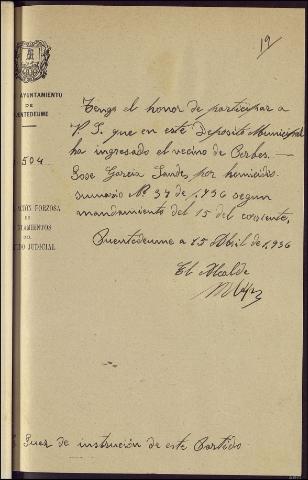 19
AYUNTAMIENTO
DE
PUENTEDEUME
504
Tengo el honor de participar a
V. S. que en este Deposito Municipal
ha ingresado el vecino de Cerbas.—
Jose Garcia Sande, por homicidio
sumario Nº 37 de 1,936 segun
mandamiento del 15 del corriente,
Puentedeume a 15 Abril de 1,936
El Alcalde
CIÓN FORZOSA
DE
NTAMIENTOS
DEL
DO JUDICIAL
Juez de instrución de este Partido